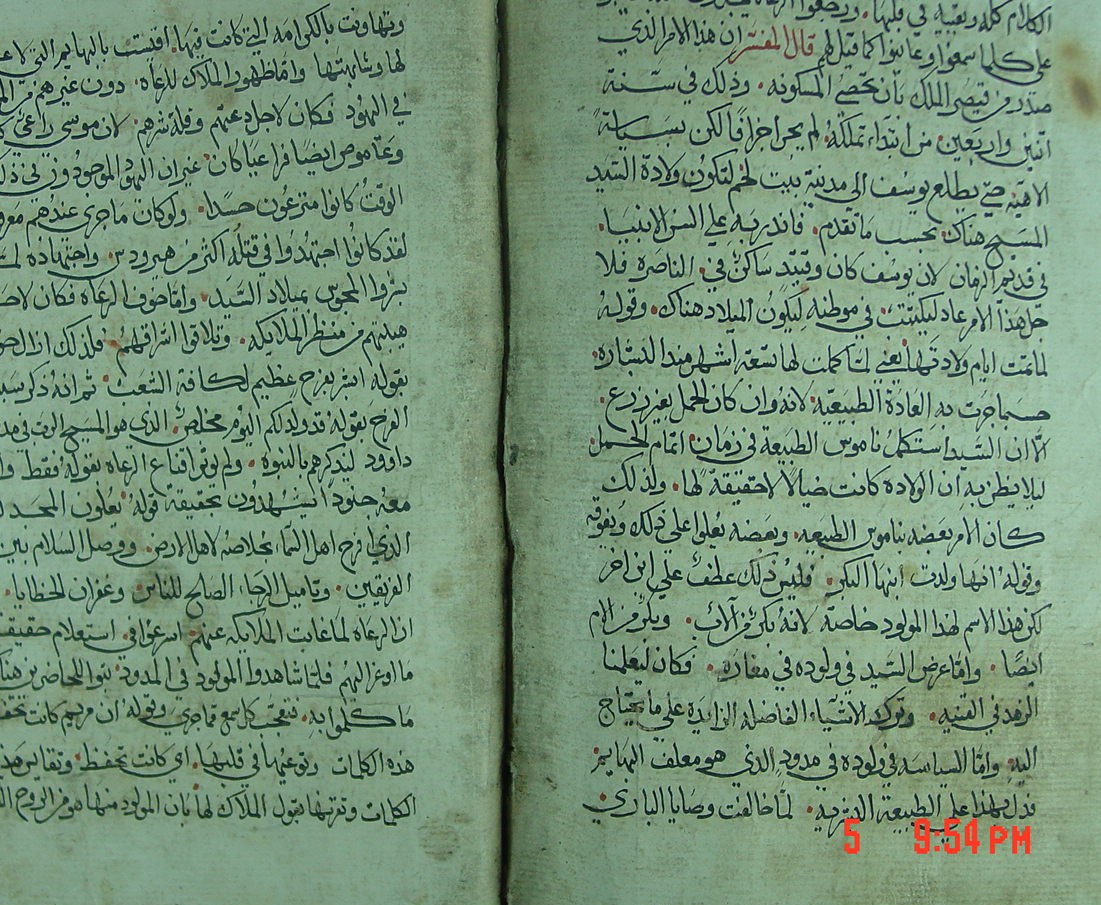 الكلام كله وتعيه في قلبها. ورجعوا الرعاه
على كلما سمعوا وعاينوا كما قيل لهم قال المفسر ان هذا الامر الذي
صدر من قيصر الملك بان تحصى المسكونه. وذلك في سنة
اتنين واربعين من ابتداء تملكه. لم يجر جزافا لكن بسياسة
الاهيه حتى يطلع يوسف الى مدينة بيت لحم لتكون ولادة السيد
المسيح هناك. بحسب ما تقدم. فانذر به على السن الانبيا.
في قديم الزمان لان يوسف كان وقتيد ساكن في الناصرة فلا
جل هذا الامر عاد ليكتتب في موطنه ليكون الميلاد هناك. وقوله
لما تمت ايام ولادتها يعني لما كملت لها تسعة اشهر منذ البشاره.
حسبما جرت به العادة الطبيعيه لانه وان كان الحمل بغير زرع.
الا ان السيد استكمل ناموس الطبيعة في زمان اتمام الحمل
ليلا يظن به ان الولاده كانت خيالا لا حقيقة لها. ولذلك
كان الامر بعضه بناموس الطبيعه. وبعضه يعلوا على ذلك ويفوقه
وقوله انها ولدت ابنها البكر. فليس ذلك عطف على ابن اخر
لكن هذا الاسم لهذا المولود خاصة لانه بكر من الاب. وبكر من الام
ايضا. واما عرض السيد في ولوده في مغاره. فكان ليعلمنا
الزهد في القنيه. وترك الاشياء الفاضله الزايدة على ما يحتاج
اليه. واما السياسه في ولوده في مدود الذي هو معلف البهايم
فدل بهذا على الطبيعة البشريه. لما خالفت وصايا الباري
5 9:54 PM
وتهاونت بالكرامه التي كانت فيها. اقيست بالبهايم التي لا
لها وشابهتها واما ظهور الملاك للرعاه. دون غيرهم من
في اليهود فكان لاجل دعتهم وقلة شرهم. لان موسى راعي
وعاموص ايضا راعيا كان. غير ان اليهود الموجودون في ذلك
الوقت كانوا مترعون حسدا. ولو كان ما جرى عندهم
لقد كانوا اجتهدوا في قتله اكثر من هيرودس. واجتهاده
بشروا المجوس بميلاد السيد. واما خوف الرعاه فكان
هيبتهم من منظر الملايكه. وتلاقوا اشراقهم. فلذلك ازال
بقوله ابشر بفرح عظيم لكافة الشعب. ثم انه ذكر سبب
الفرح بقوله قد ولد لكم اليوم مخلص. الذي هو المسيح الرب في
داوود ليذكرهم بالنبوه. ولم يوثر اقناع الرعاه بقوله فقط
معه جنودا يشهدون بحقيقة قوله يعلون المجد
الذي فرح اهل السماء بخلاصه لاهل الارض. ووصل السلام بين
الفريقين. وتاميل الرجاء الصالح للناس وغفران الخطايا.
ان الرعاه لما غابت الملايكه عنهم اسرعوا في استعلام
ما اوعز اليهم فلما شاهدوا المولود في المدود نبوا للحاضرين
ما كلموا به. فتعجب كل سمع قما جرى وقوله ان مريم كانت
هذه الكلمات وتوعيها في قلبها. اي كانت تحفظ وتقايس
الكلمات وتقرنها بقول الملاك لها بان المولود منها هو من الروح